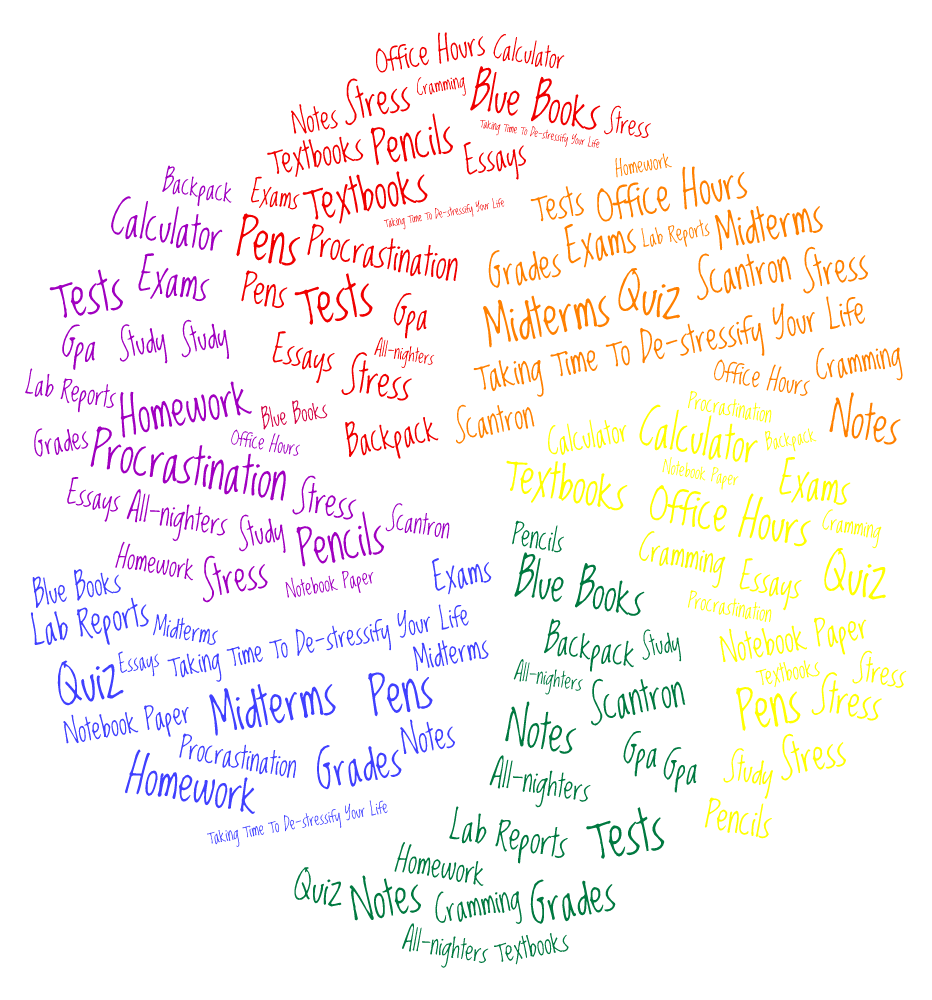 Office Hours Calculator
Notes Stress Cramming Blue Books Stress
Taking Time To De-stressify Your Life
Textbooks Pencils Essays
Exams Textbooks
Taking Time To De-stressify Your Life
Pens Procrastination
Pens Tests Gpa
Essays All-nighters
Stress
Blue Books
Office Hours
Backpack
Homework
Tests Office Hours
Grades Exams Lab Reports Midterms
Midterms Quiz Scantron Stress
Taking Time To De-stressify Your Life
Office Hours Cramming
Scantron Notes
Backpack
Calculator
Tests Exams
Gpa Study Study
Lab Reports Homework
Grades Procrastination
Stress
Essays All-nighters Study Pencils Scantron
Homework Stress Notebook Paper
Procrastination
Calculator Calculator Backpack
Notebook Paper
Textbooks Exams
Office Hours Cramming
Cramming Essays Quiz
Procrastination
Notebook Paper
Textbooks Stress
Pens Stress
Study Stress
Pencils
Blue Books Exams
Lab Reports Midterms
Taking Time To De-stressify Your Life
Quiz Essays Midterms
Notebook Paper Midterms Pens
Procrastination Grades Notes
Homework
Taking Time To De-stressify Your Life
Pencils
Blue Books
Backpack Study
All-nighters Scantron
Notes Gpa Gpa
All-nighters
Lab Reports Tests
Homework
Quiz Notes Cramming Grades
All-nighters Textbooks